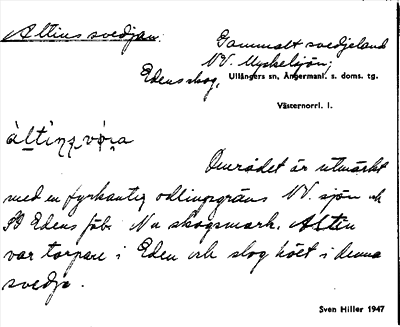 Altins svedjan.
Gammalt svedjeland
NV. Myckelsjön;
Edens skog,
Ullångers sn, Ångermanl. s. doms. tg.
Västernorrl. l.
Området är utmärkt
med en fyrkantig odlingsgräns NV. sjön och
SO Edens fäb. Nu skogsmark. Altin
var torpare i Eden och slog höet i denna
svedje.
Sven Hiller 1947